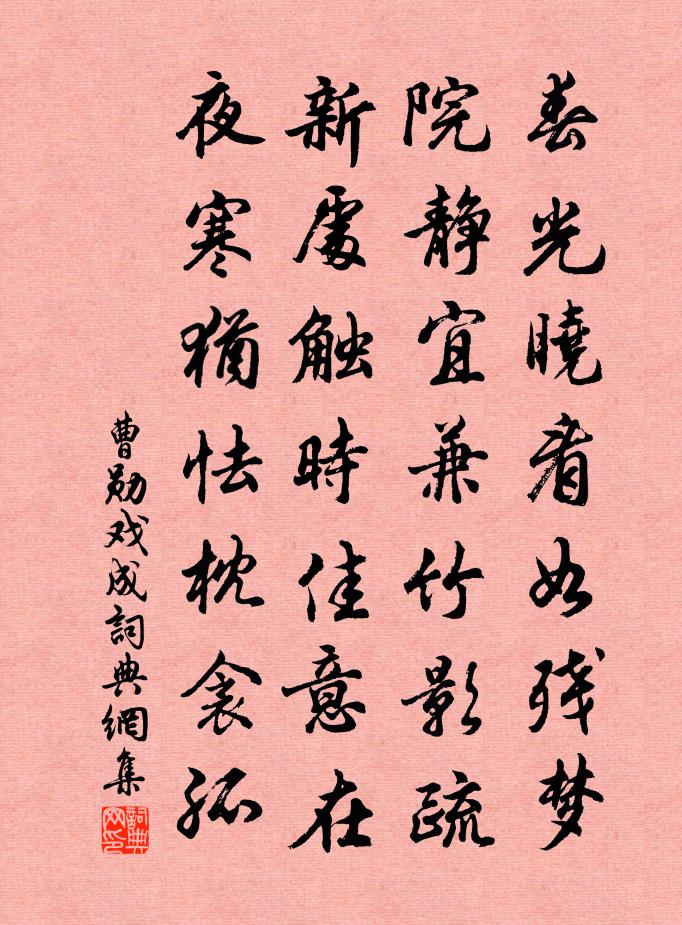 春光曉看如残梦
院静宜兼竹影疏
新處触時佳意在
夜寒猶怯枕衾孤
曹勋戏成詞典網集
詞典网印